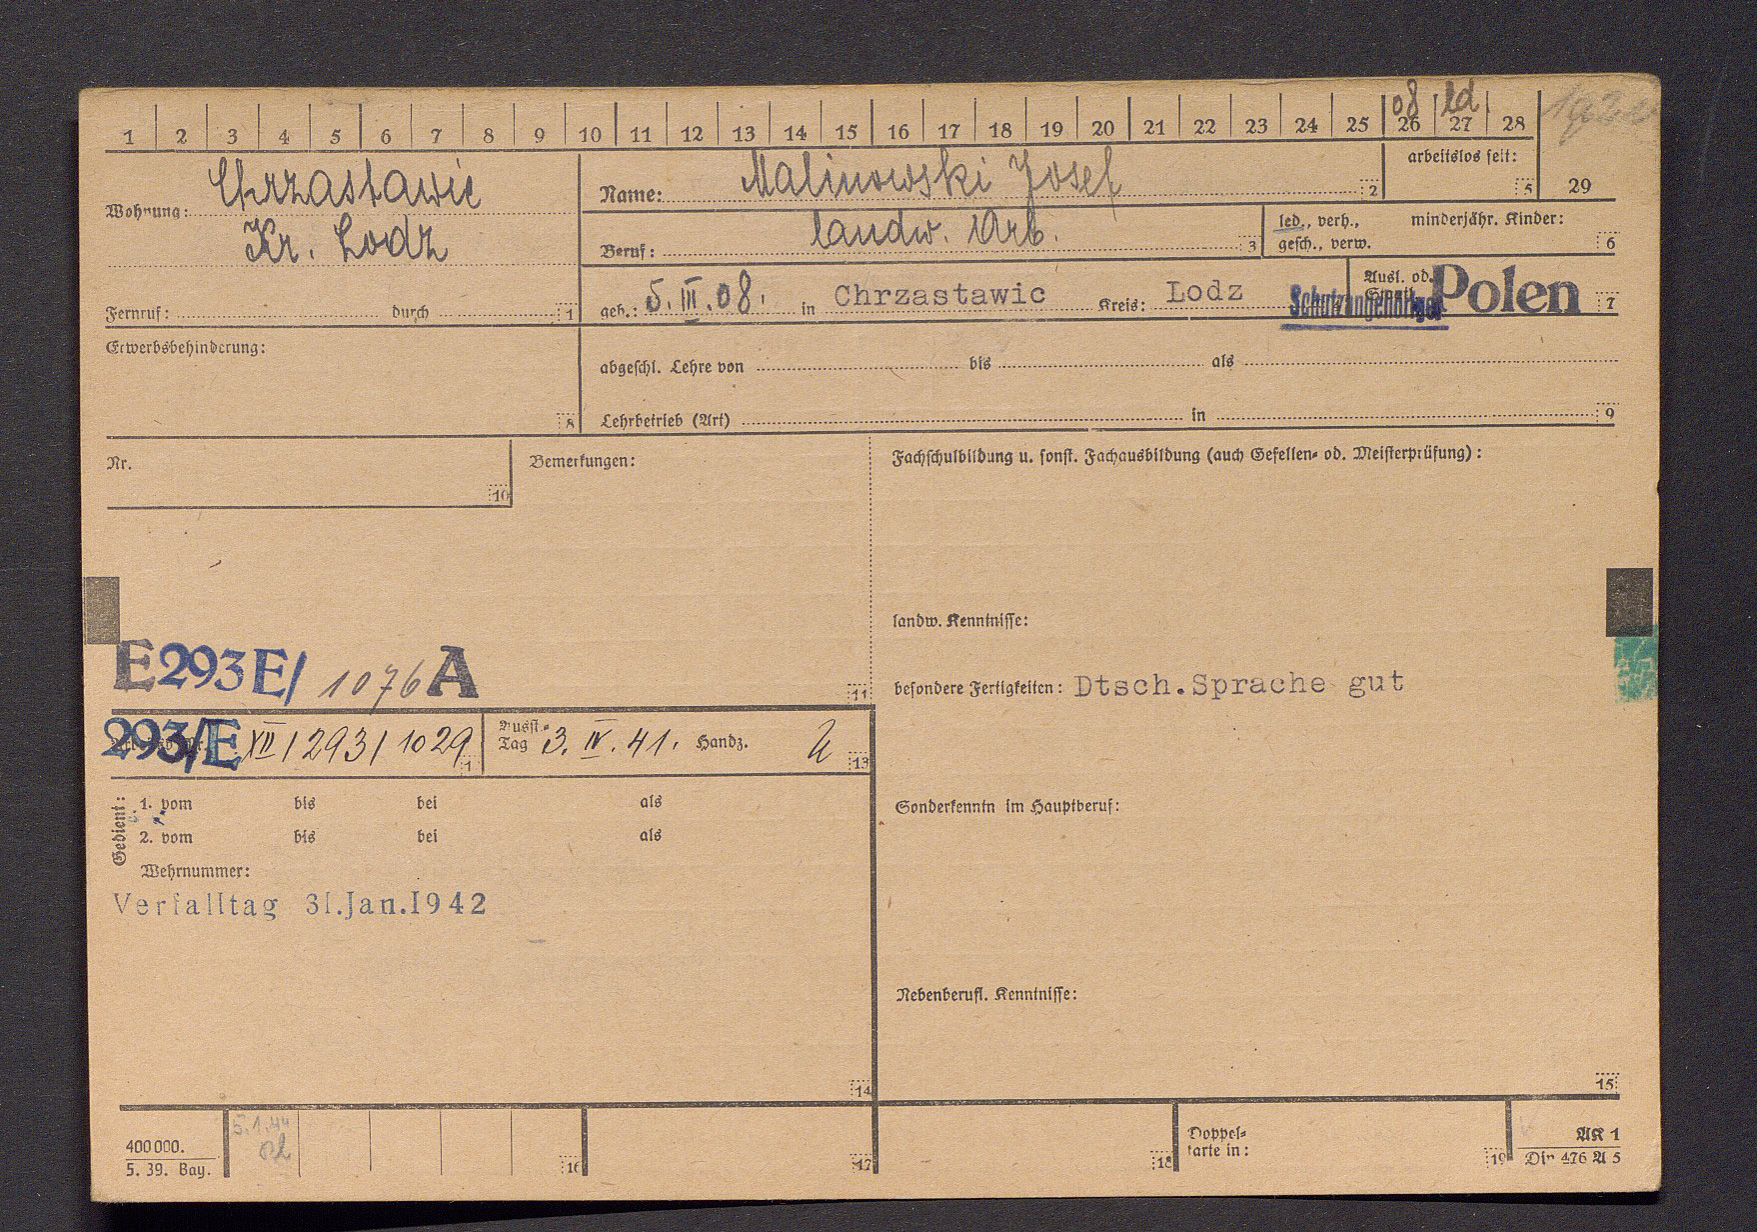 08 ld
1 2 3 4 5 6 7 8 9 10 11 12 13 14 15 16 17 18 19 20 21 22 23 24 25 26 27 28
29
Wohnung: Chrzastawic
Kr. Lodz
Fernruf: durch 1
Name: Malinowski Josef 2
arbeitslos seit: 5
Beruf: landw. Arb. 3
led., verh., gesch., verw.
minderjähr. Kinder: 6
geb.: 5. III. 08. in Chrzastawic Kreis: Lodz
Schutzangehöriger
Ausl. od. Polen 7
Erwerbsbehinderung: 8
abgeschl. Lehre von bis als
Lehrbetrieb (Art) in 9
Nr. 10
Bemerkungen:
Fachschulbildung u. sonst. Fachausbildung (auch Gesellen- od. Meisterprüfung):
landw. Kenntnisse:
E293E/ 1076 A 11
besondere Fertigkeiten: Dtsch.Sprache gut
293/E XII/293/1029
Ausst.-Tag 3. IV. 41. Handz. 13
Gedient:
1. vom bis bei als
2. vom bis bei als
Wehrnummer:
Sonderkenntn im Hauptberuf:
Verfalltag 31.Jan.1942
Nebenberufl. Kenntnisse:
14
15
5.1.44
400000.
5. 39. Bay.
16 17 18
Doppel-
karte in: 19
AK 1
Din 476 A 5